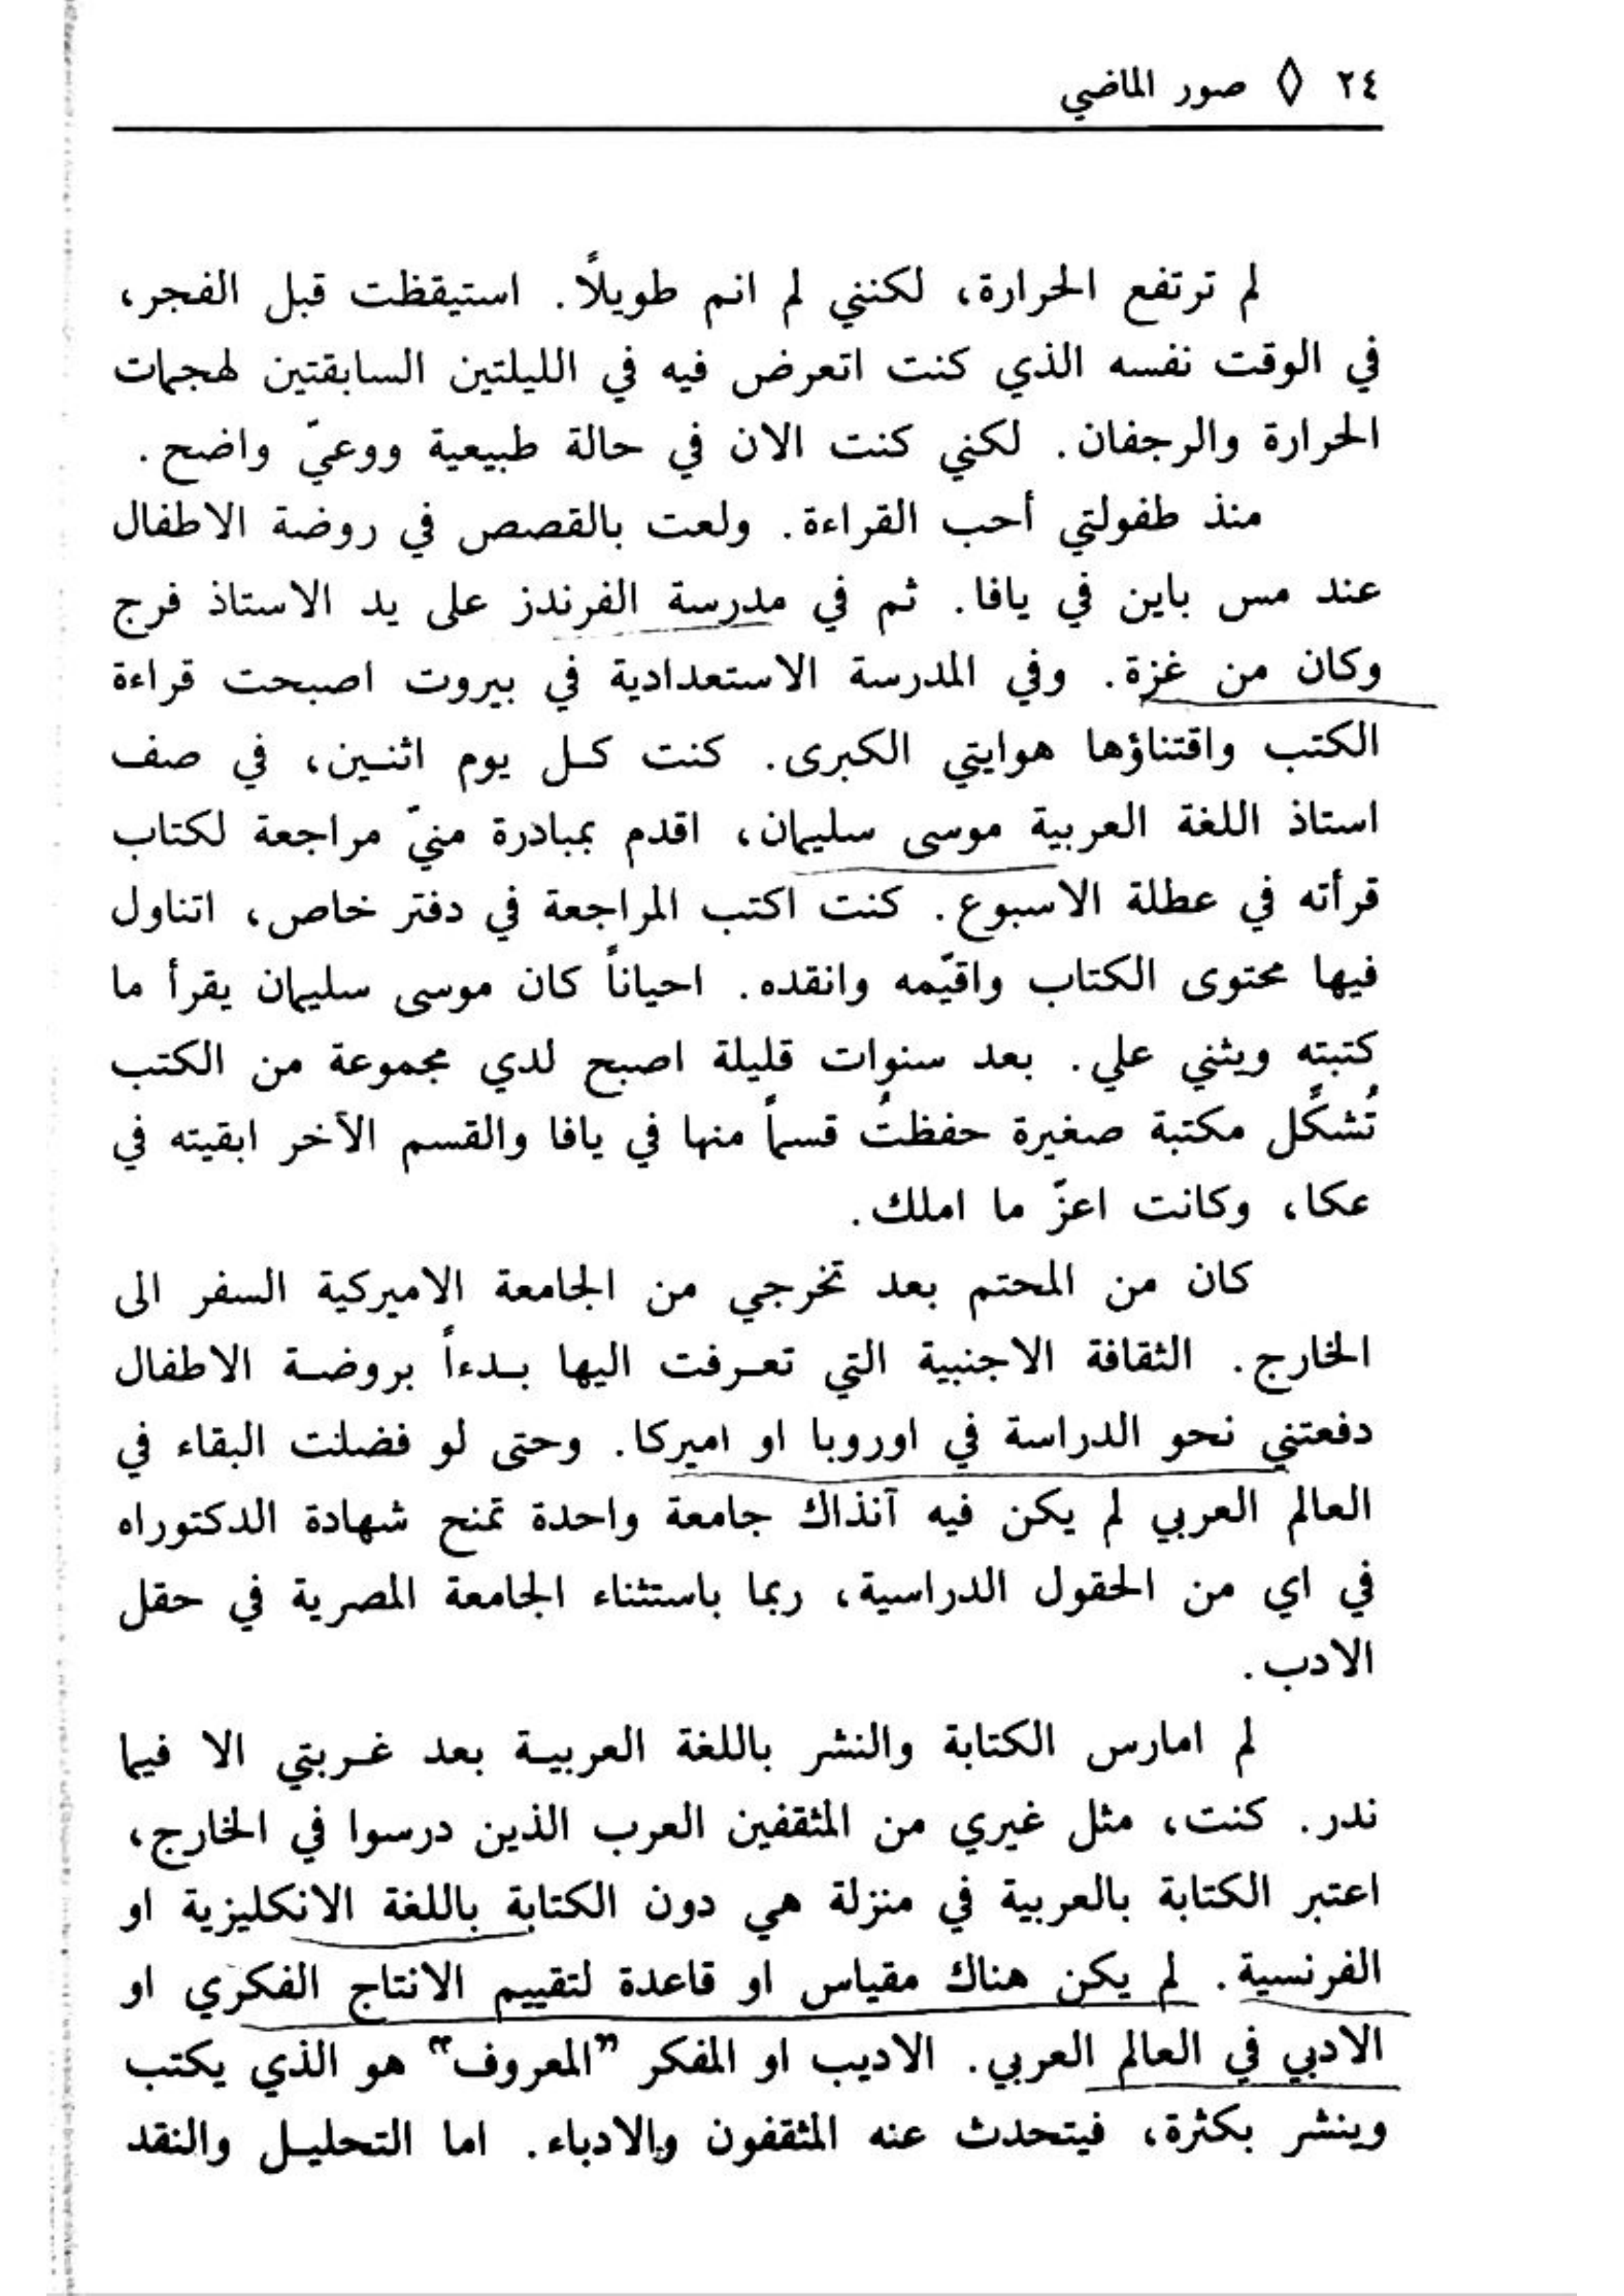 ٢٤ ◊ صور الماضي
لم ترتفع الحرارة، لكنني لم انم طويلاً. استيقظت قبل الفجر،
في الوقت نفسه الذي كنت اتعرض فيه في الليلتين السابقتين لهجمات
الحرارة والرجفان. لكني كنت الان في حالة طبيعية ووعيّ واضح.
منذ طفولتي أحب القراءة. ولعت بالقصص في روضة الاطفال
عند مس باين في يافا. ثم في مدرسة الفرندز على يد الاستاذ فرج
وكان من غزة. وفي المدرسة الاستعدادية في بيروت اصبحت قراءة
الكتب واقتناؤها هوايتي الكبرى. كنت كل يوم اثنين، في صف
استاذ اللغة العربية موسى سليمان، اقدم بمبادرة منيّ مراجعة لكتاب
قرأته في عطلة الاسبوع. كنت اكتب المراجعة في دفتر خاص، اتناول
فيها محتوى الكتاب واقيّمه وانقده. احياناً كان موسى سليمان يقرأ ما
كتبته ويثني علي. بعد سنوات قليلة اصبح لدي مجموعة من الكتب
تُشكِّل مكتبة صغيرة حفظتُ قسماً منها في يافا والقسم الآخر ابقيته في
عكا، وكانت اعزّ ما املك.
كان من المحتم بعد تخرجي من الجامعة الاميركية السفر الى
الخارج. الثقافة الاجنبية التي تعرفت اليها بدءاً بروضة الاطفال
دفعتني نحو الدراسة في اوروبا او اميركا. وحتى لو فضلت البقاء في
العالم العربي لم يكن فيه آنذاك جامعة واحدة تمنح شهادة الدكتوراه
في اي من الحقول الدراسية، ربما باستثناء الجامعة المصرية في حقل
الادب.
لم امارس الكتابة والنشر باللغة العربية بعد غربتي الا فيما
ندر. كنت، مثل غيري من المثقفين العرب الذين درسوا في الخارج،
اعتبر الكتابة بالعربية في منزلة هي دون الكتابة باللغة الانكليزية او
الفرنسية. لم يكن هناك مقياس او قاعدة لتقييم الانتاج الفكري او
الادبي في العالم العربي. الاديب او المفكر ”المعروف“ هو الذي يكتب
وينشر بكثرة، فيتحدث عنه المثقفون والادباء. اما التحليل والنقد